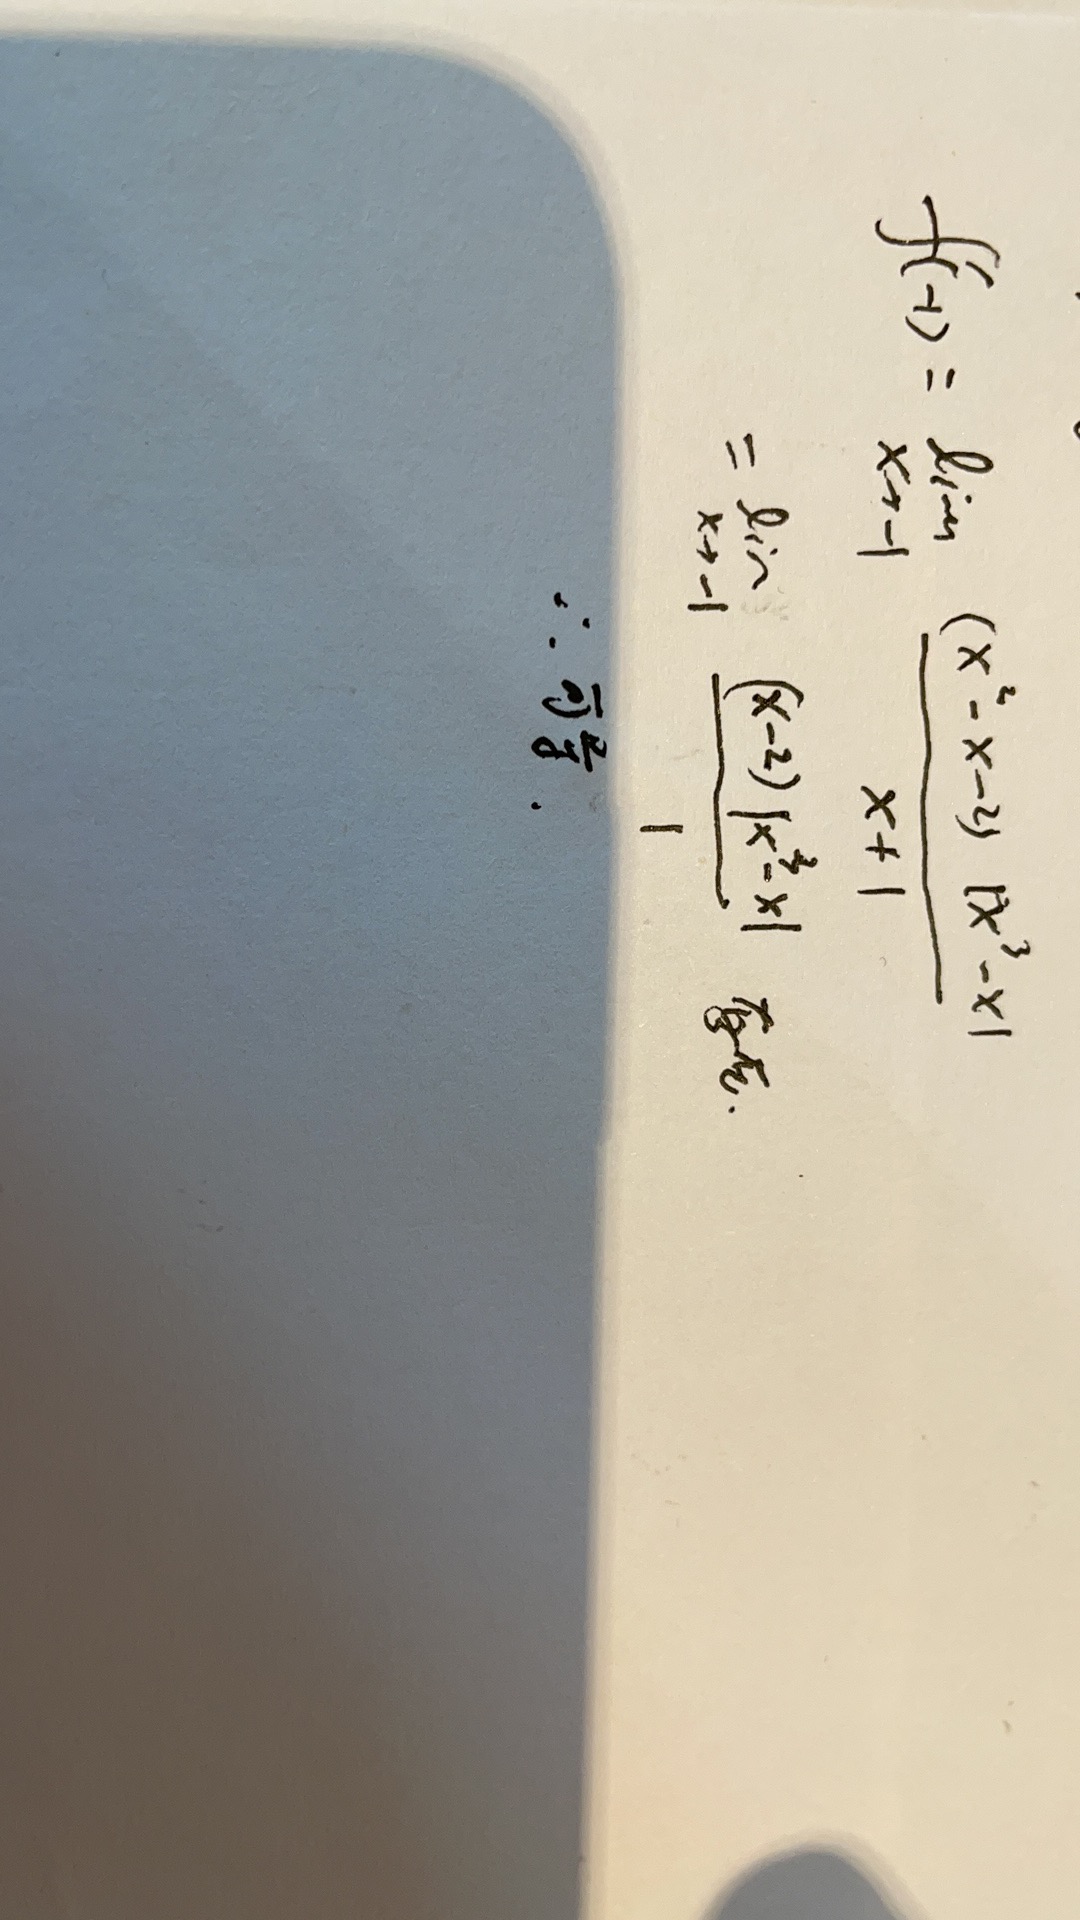 f'(-1) = lim x→-1 (x²-x-2) |x³-x| / x+1
= lim x→-1 (x-2) |x³-x| / 1 存在.
∴ 可导.